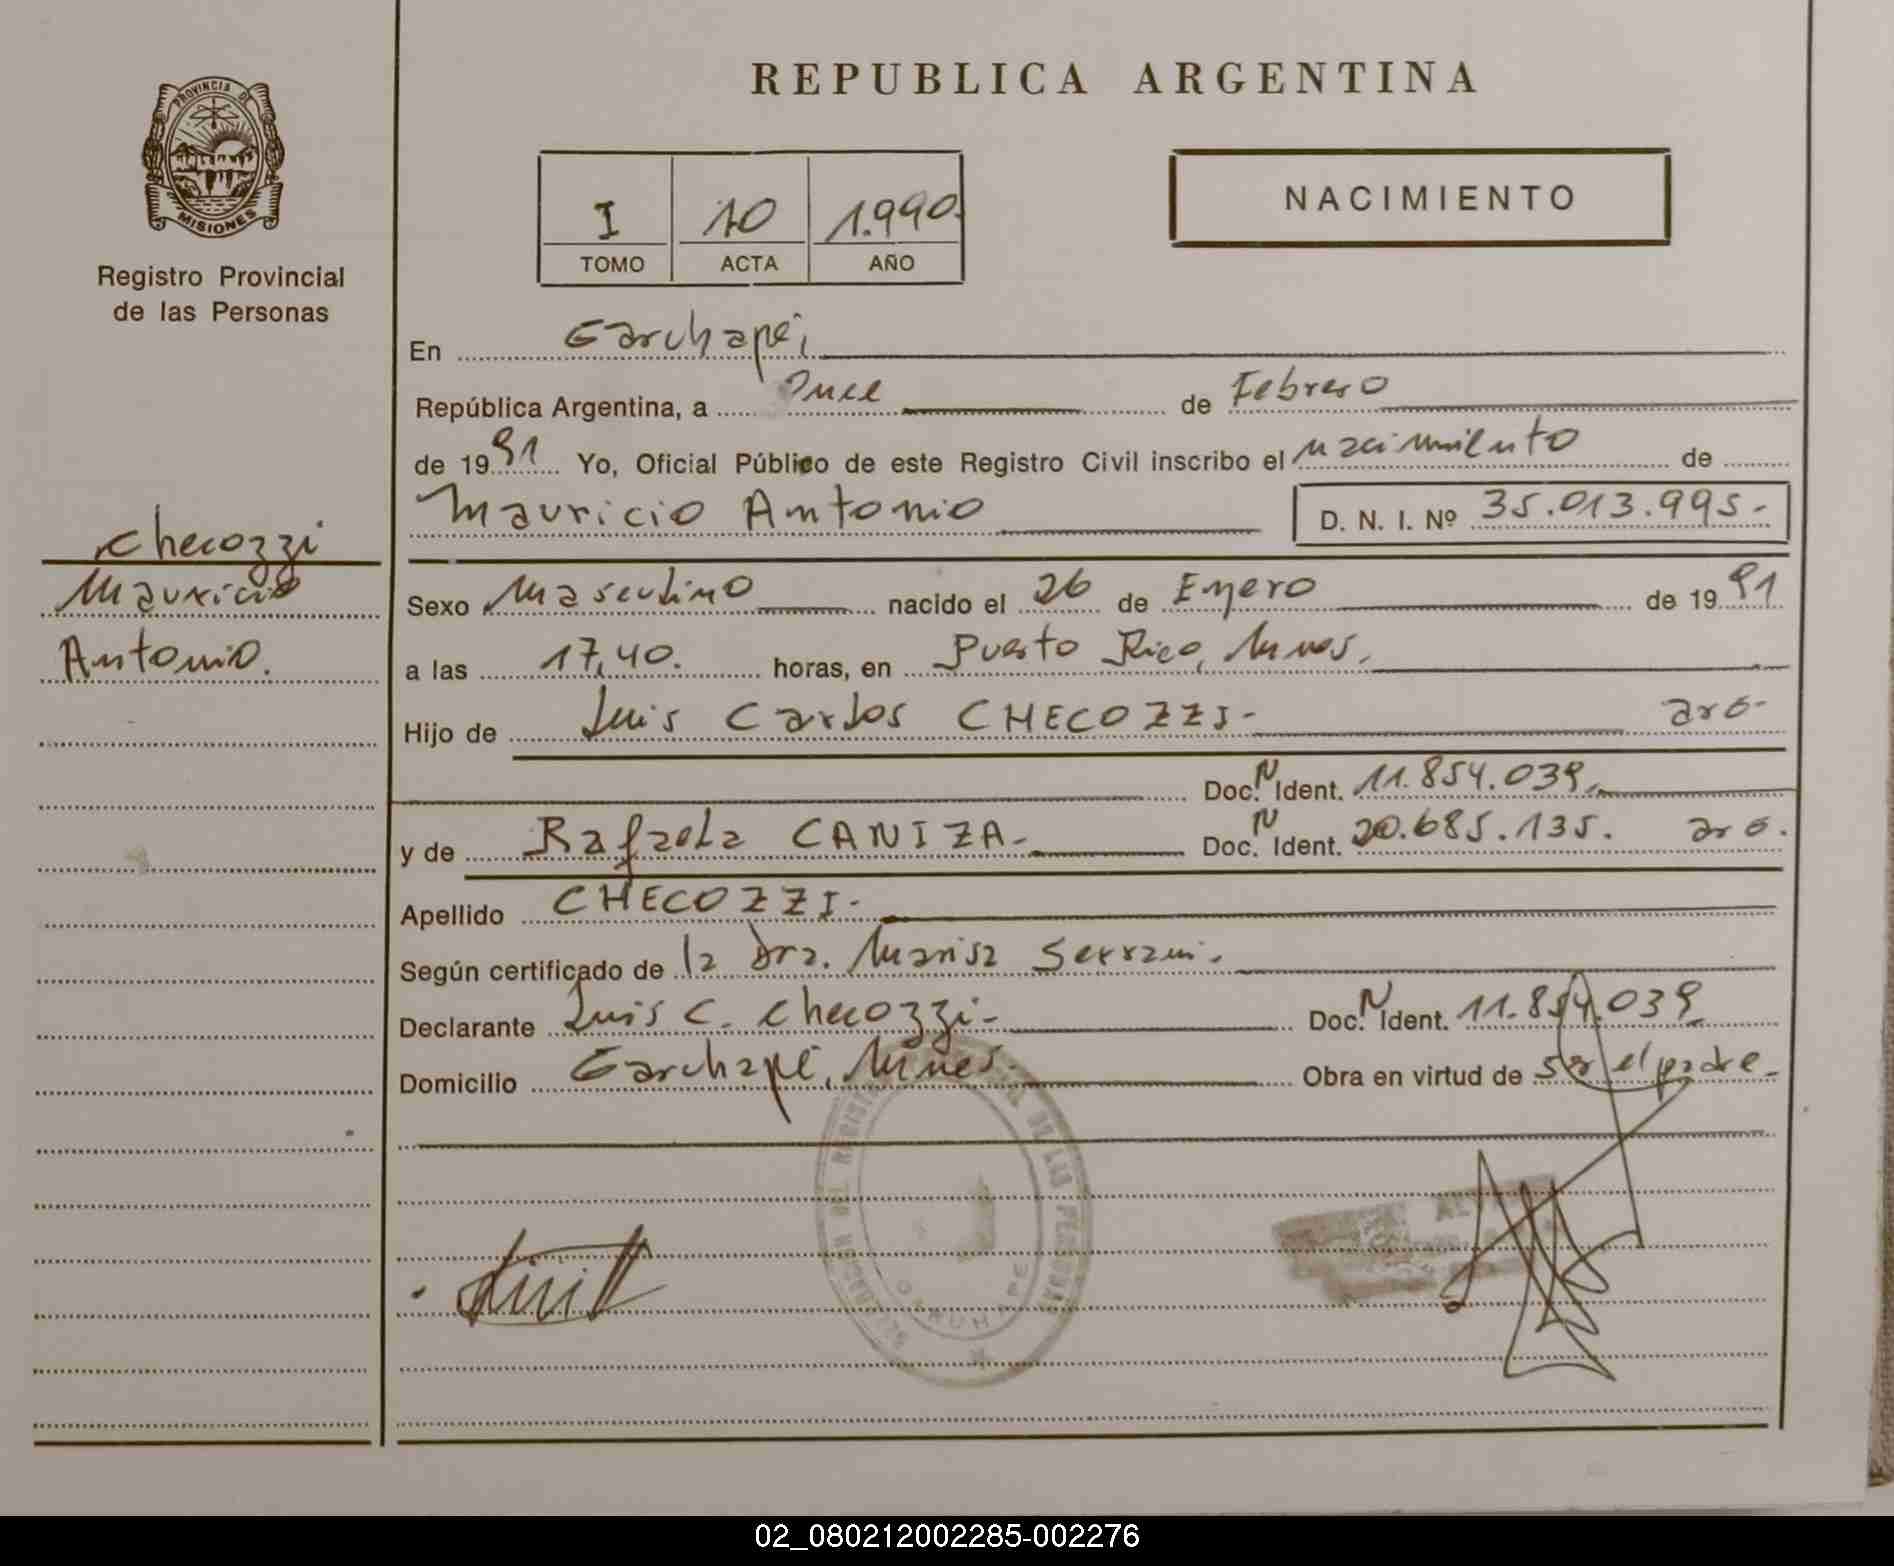 PROVINCIA DE
MISIONES
Registro Provincial
de las Personas
Checozzi
Mauricio
Antonio.
REPUBLICA ARGENTINA
I 10 1.990.
TOMO ACTA AÑO
NACIMIENTO
En Garuhapé,
República Argentina, a Once de Febrero
de 1991 Yo, Oficial Público de este Registro Civil inscribo el nacimiento de
Mauricio Antonio D. N. I. Nº 35.013.995.-
Sexo Masculino nacido el 26 de Enero de 1991
a las 17,40. horas, en Puerto Rico, Mnes.
Hijo de Luis Carlos CHECOZZI- arg-
Doc. N Ident. 11.854.039.
y de Rafaela CANIZA.- Doc. N Ident. 20.685.135. arg.
Apellido CHECOZZI-
Según certificado de la Dra. Marisa
Declarante Luis C. Checozzi- Doc. N Ident. 11.854.039
Domicilio Garuhapé, Mnes. Obra en virtud de ser el padre.-
DE LAS PERSONAS
GARUHAPE
02_080212002285-002276